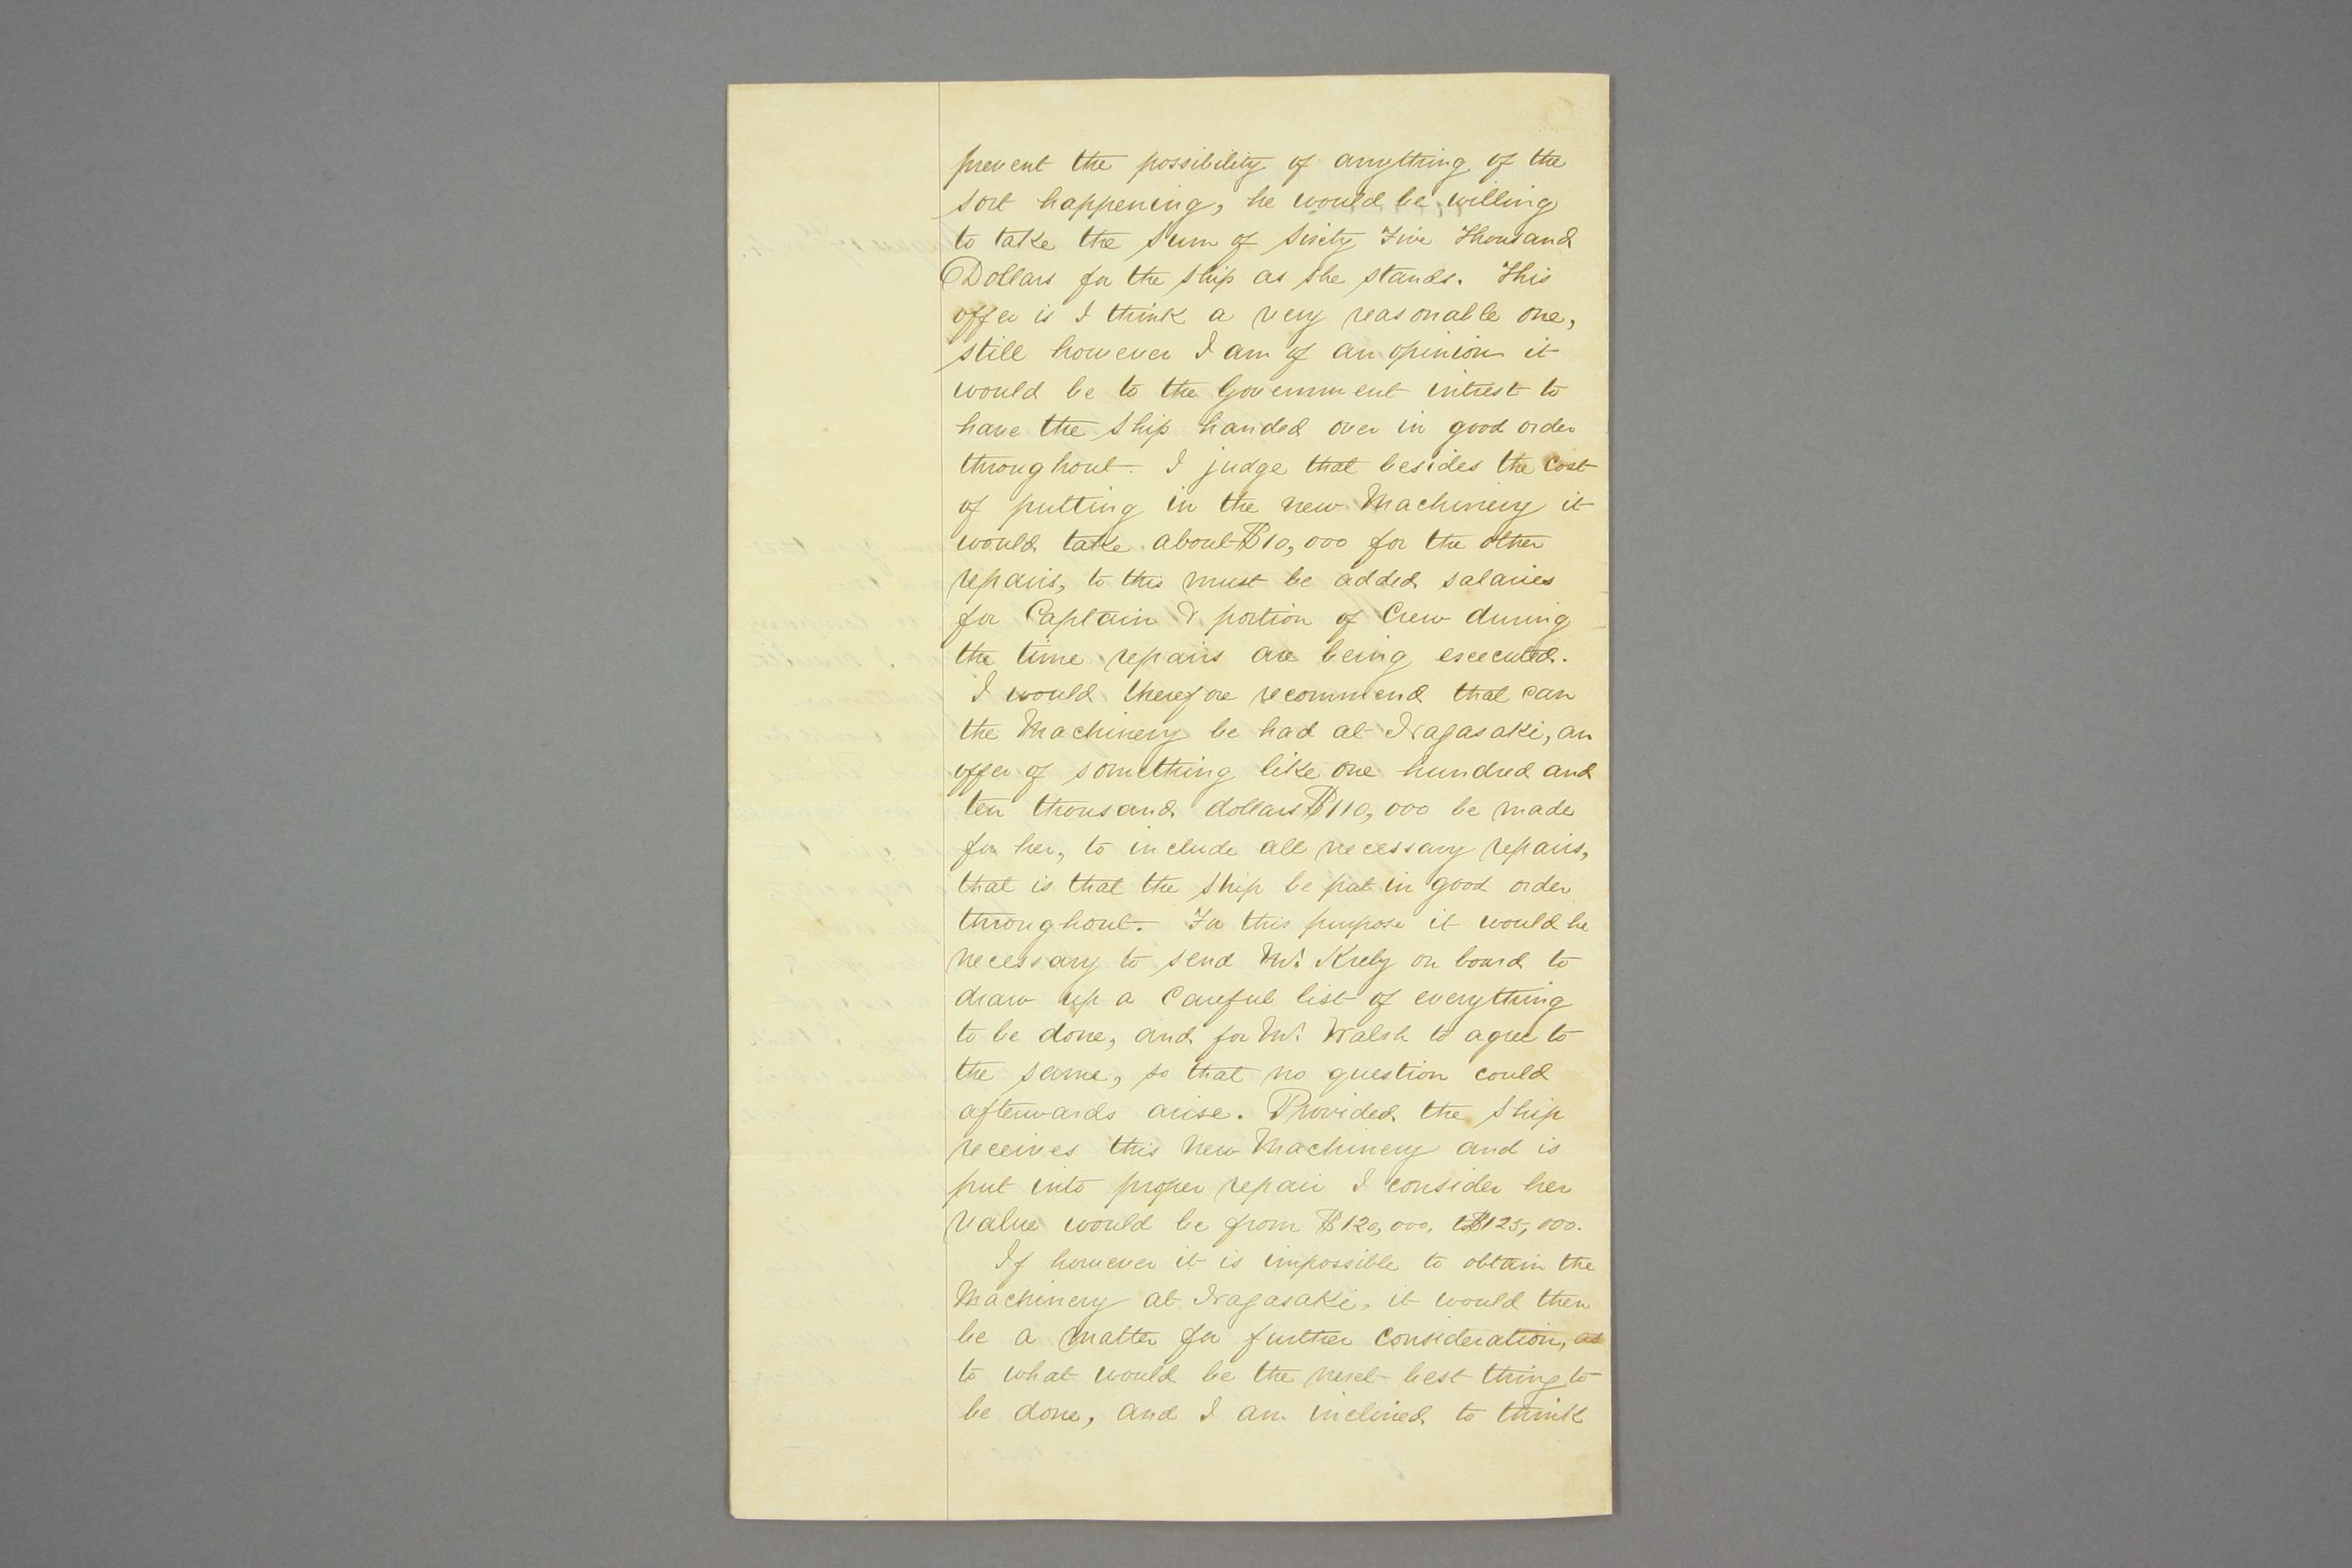 prevent the possibility of anything of the
sort happening, he would be willing
to take the sum of Sixty Five Thousand
Dollars for the ship as she stands. This
offer is I think a very reasonable one,
still however I am of an opinion it
would be to the Government intrest to
have the ship handed over in good order
throughout. I judge that besides the cost
of putting in the new Machinery it
would take about $10,000 for the other
repairs, to this must be added salaries
for Captain & portion of Crew during
the time repairs are being executed.
I would therefore recommend that can
the Machinery be had at Nagasaki, an
offer of something like one hundred and
ten thousand dollars $110,000 be made
for her, to include all necessary repairs,
that is that the ship be put in good order
throughout. For this purpose it would be
necessary to send Mr. on board to
draw up a careful list of everything
to be done, and for Mr. Walsh to agree to
the same, so that no question could
afterwards arise. Provided the ship
receives this new Machinery and is
put into proper repair I consider her
value would be from $120,000, to $125,000.
If however it is impossible to obtain the
Machinery at Nagasaki, it would then
be a matter for further consideration, as
to what would be the next best thing to
be done, and I am inclined to think